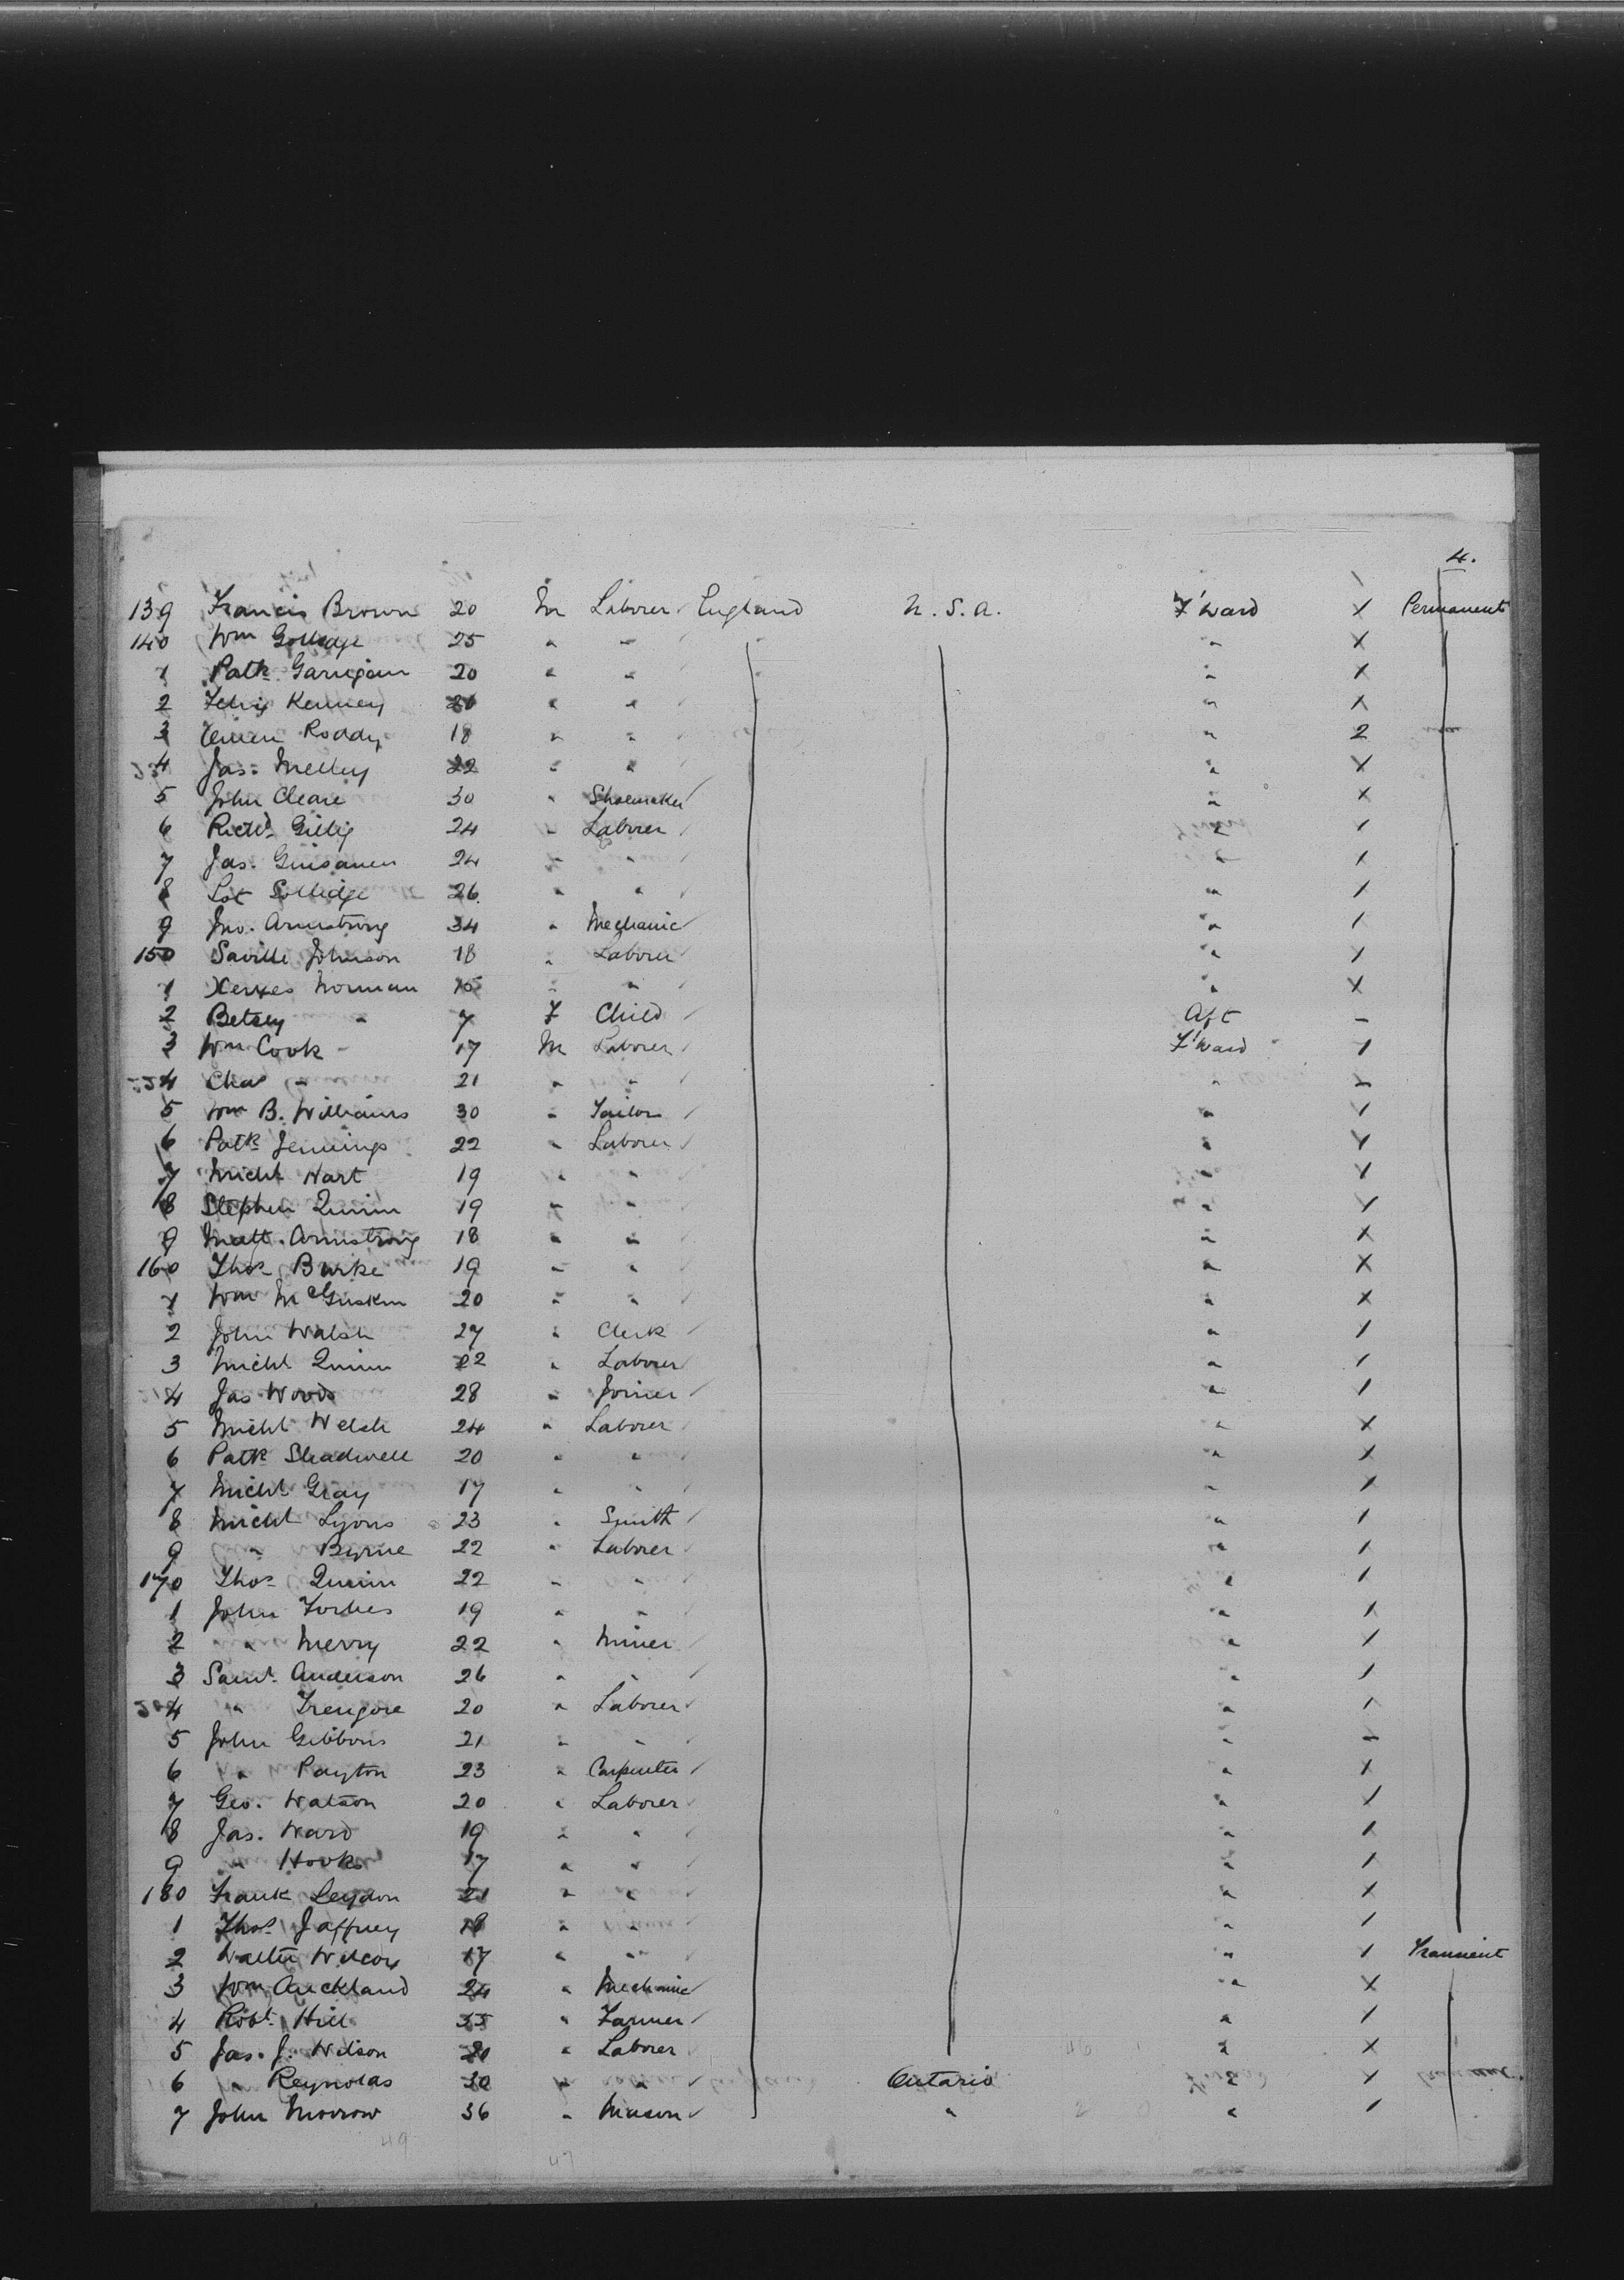 4.
139 Francis Brown 20 M Laborer England U.S.A. F'ward 1 Permanent
140 Wm Golledge 25 " " " X
1 Patk Garrigan 20 " " " X
2 Felix Kenney " " " X
3 Roddy 18 " " " 2
4 Jas. Melley 22 " " " X
5 John Cleare 30 " Shoemaker " X
6 Richd Gillig 24 " Laborer " 1
7 Jas. 24 " " " 1
8 Lot Golledge 26 " " " 1
9 Jno. Armstrong 34 " Mechanic " 1
150 Saville Johnson 18 " Laborer " 1
1 Xerxes Norman " " " X
2 Betsey " 7 F Child Aft –
3 Wm Cook 17 M Laborer F'ward 1
4 Chas " 21 " " "
5 Wm B. Williams 30 " Tailor " 1
6 Patk Jennings 22 " Laborer " 1
7 Michl Hart 19 " " " 1
8 Stephen Quinn 19 " " " 1
9 Matt. Armstrong 18 " " " X
160 Thos Burke 19 " " " X
1 Wm McGuskin 20 " " " X
2 John Walsh 27 " Clerk " 1
3 Michl Quinn 22 " Laborer " 1
4 Jas Woods 28 " Joiner " 1
5 Michl Welsh 24 " Laborer " X
6 Patk Shadwell 20 " " " X
7 Michl Gray 17 " " " 1
8 Michl Lyons 23 " Smith " 1
9 " Byrne 22 " Laborer " 1
170 Thos Quinn 22 " " " 1
1 John Forbes 19 " " " 1
2 " Merry 22 " Miner " 1
3 Saml Anderson 26 " " " 1
4 " Trengove 20 " Laborer " 1
5 John Gibbons 21 " " " –
6 " Payton 23 " Carpenter " X
7 Geo. Watson 20 " Laborer " 1
8 Jas. Ward 19 " " " 1
9 " Hooks 17 " " " 1
180 Frank Leydon 21 " " " X
1 Thos Jaffrey " " " 1
2 Walter Wilcox 17 " " " 1 Transient
3 Wm Auckland 24 " Mechanic " X
4 Robt Hill 35 " Farmer " 1
5 Jas. J. Wilson " Laborer " X
6 " Reynolds 30 " " Ontario " 1
7 John Morrow 36 " Mason " " 1
49 47